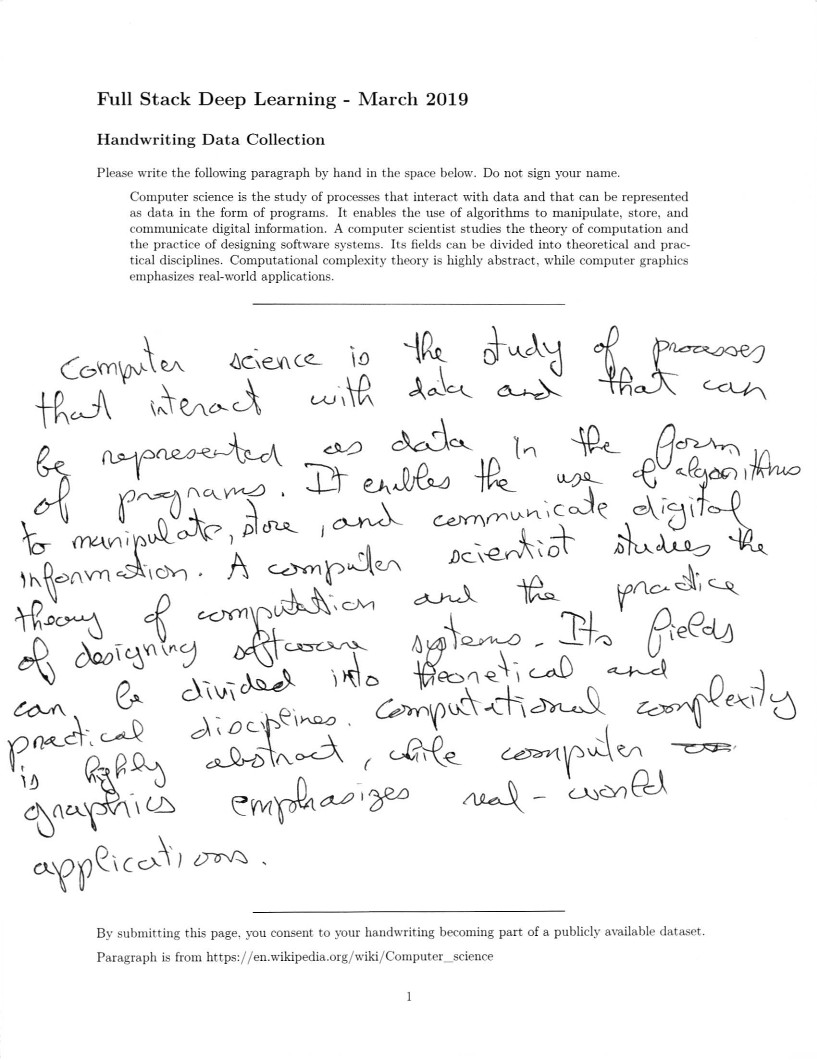 Full Stack Deep Learning - March 2019
Handwriting Data Collection
Please write the following paragraph by hand in the space below. Do not sign your name.
Computer science is the study of processes that interact with data and that can be represented
as data in the form of programs. It enables the use of algorithms to manipulate, store, and
communicate digital information. A computer scientist studies the theory of computation and
the practice of designing software systems. Its fields can be divided into theoretical and prac-
tical disciplines. Computational complexity theory is highly abstract, while computer graphics
emphasizes real-world applications.
Computer science is the study of processes
that interact with data and that can
be represented as data in the form
of programs. It enables the use of algorithms
to manipulate, store, and communicate digital
information. A computer scientist studies the
theory of computation and the practice
of designing software systems. Its fields
can be divided into theoretical and
practical disciplines. Computational complexity
is highly abstract, while computer
graphics emphasizes real-world
applications.
By submitting this page, you consent to your handwriting becoming part of a publicly available dataset.
Paragraph is from https://en.wikipedia.org/wiki/Computer_science
1